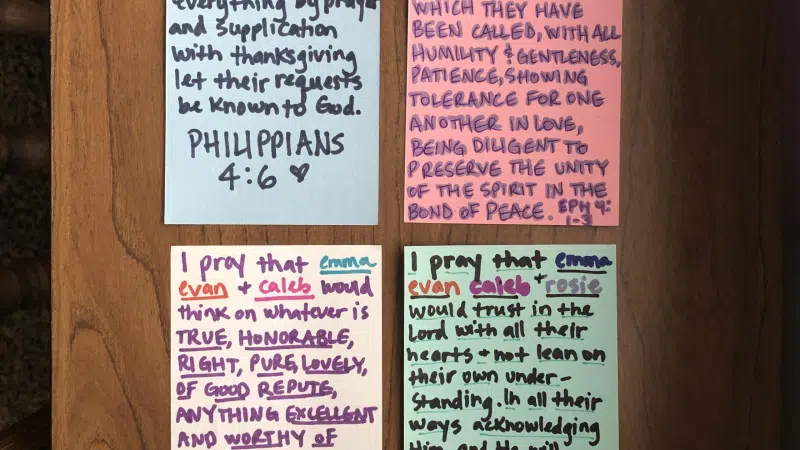 everything by prayer
and supplication
with thanksgiving
let their requests
be known to God.
PHILIPPIANS
4:6
WHICH THEY HAVE
BEEN CALLED, WITH ALL
HUMILITY & GENTLENESS,
PATIENCE, SHOWING
TOLERANCE FOR ONE
ANOTHER IN LOVE,
BEING DILIGENT TO
PRESERVE THE UNITY
OF THE SPIRIT IN THE
BOND OF PEACE. EPH 4:
1-3
I pray that emma
evan + caleb would
think on whatever is
TRUE, HONORABLE,
RIGHT, PURE, LOVELY,
OF GOOD REPUTE,
ANYTHING EXCELLENT
AND WORTHY OF
I pray that emma
evan caleb + rosie
would trust in the
Lord with all their
hearts + not lean on
their own under-
standing. In all their
ways acknowledging
Him and He will